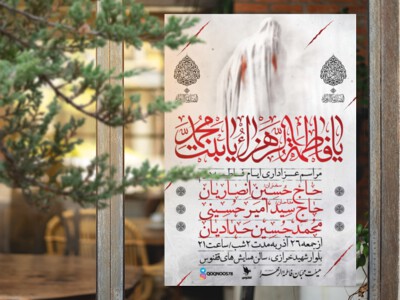 یا فاطمة الزهراء یا بنت محمد
مراسم عزاداری ایام فاطمیه
حاج حسین انصاریان
حاج سید امیر حسینی
محمد حسین حدادیان
از جمعه ۲۶ آذر به مدت ۲ شب / ساعت ۲۱
بلوار شهید خرازی، سالن همایش های ققنوس
هیئت محبان فاطمة الزهرا
QOQNOOS.19